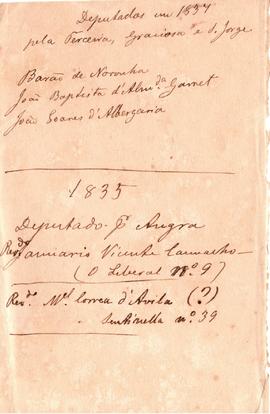 Deputados em 1834
pela Terceira, Graciosa e S. Jorge
Barão de Noronha
João Baptista d'Almda Garret
João Soares d'Albergaria
1835
Deputado pr Angra
Revdo Januario Vicente Camacho
(O Liberal nº 9)
Revdo Mel Correa d'Avila (?)
Sentinella nº 39